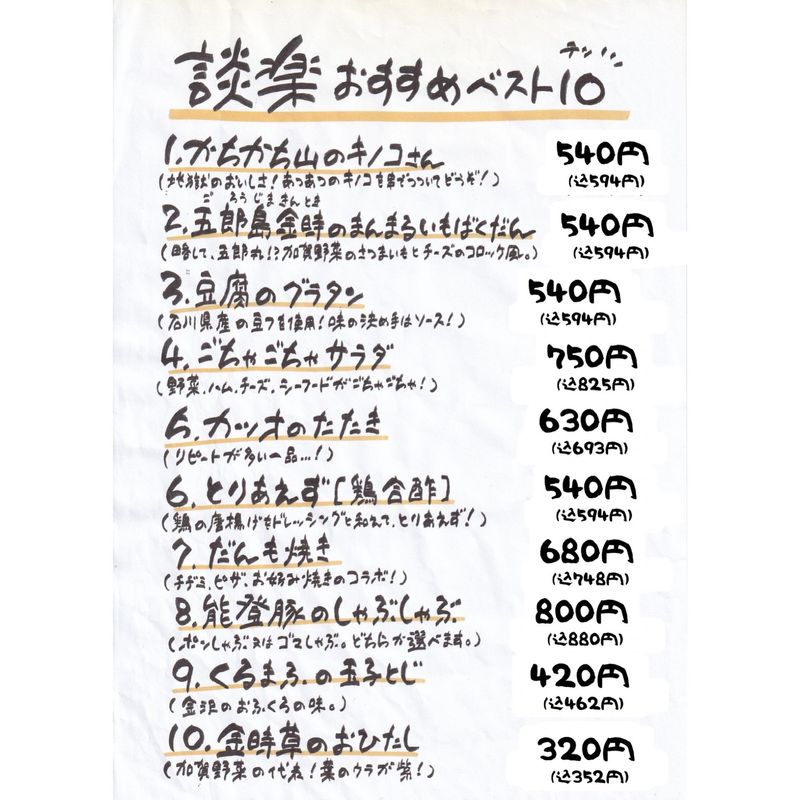 談楽 おすすめベスト10
テン
1. かちかち山のキノコさん 540円
(地獄のおいしさ!あつあつのキノコを串でつついてどうぞ!) (込594円)
ごろうじまきんとき
2. 五郎島金時のまんまるいもばくだん 540円
(略して、五郎丸!?加賀野菜のさつまいもとチーズのコロッケ風。) (込594円)
3. 豆腐のグラタン 540円
(石川県産の豆フを使用!味の決め手はソース!) (込594円)
4. ごちゃごちゃサラダ 750円
(野菜、ハム、チーズ、シーフードがごちゃごちゃ!) (込825円)
5. カツオのたたき 630円
(リピートが多い一品…!) (込693円)
6. とりあえず[鶏合酢] 540円
(鶏の唐揚げをドレッシングと和えて、とりあえず!) (込594円)
7. だんも焼き 680円
(チヂミ、ピザ、お好み焼きのコラボ!) (込748円)
8. 能登豚のしゃぶしゃぶ 800円
(ポンしゃぶ又はゴマしゃぶ。どちらか選べます。) (込880円)
9. くるまふの玉子とじ 420円
(金沢のおふくろの味。) (込462円)
10. 金時草のおひたし 320円
(加賀野菜の代表!葉のウラが紫!) (込352円)